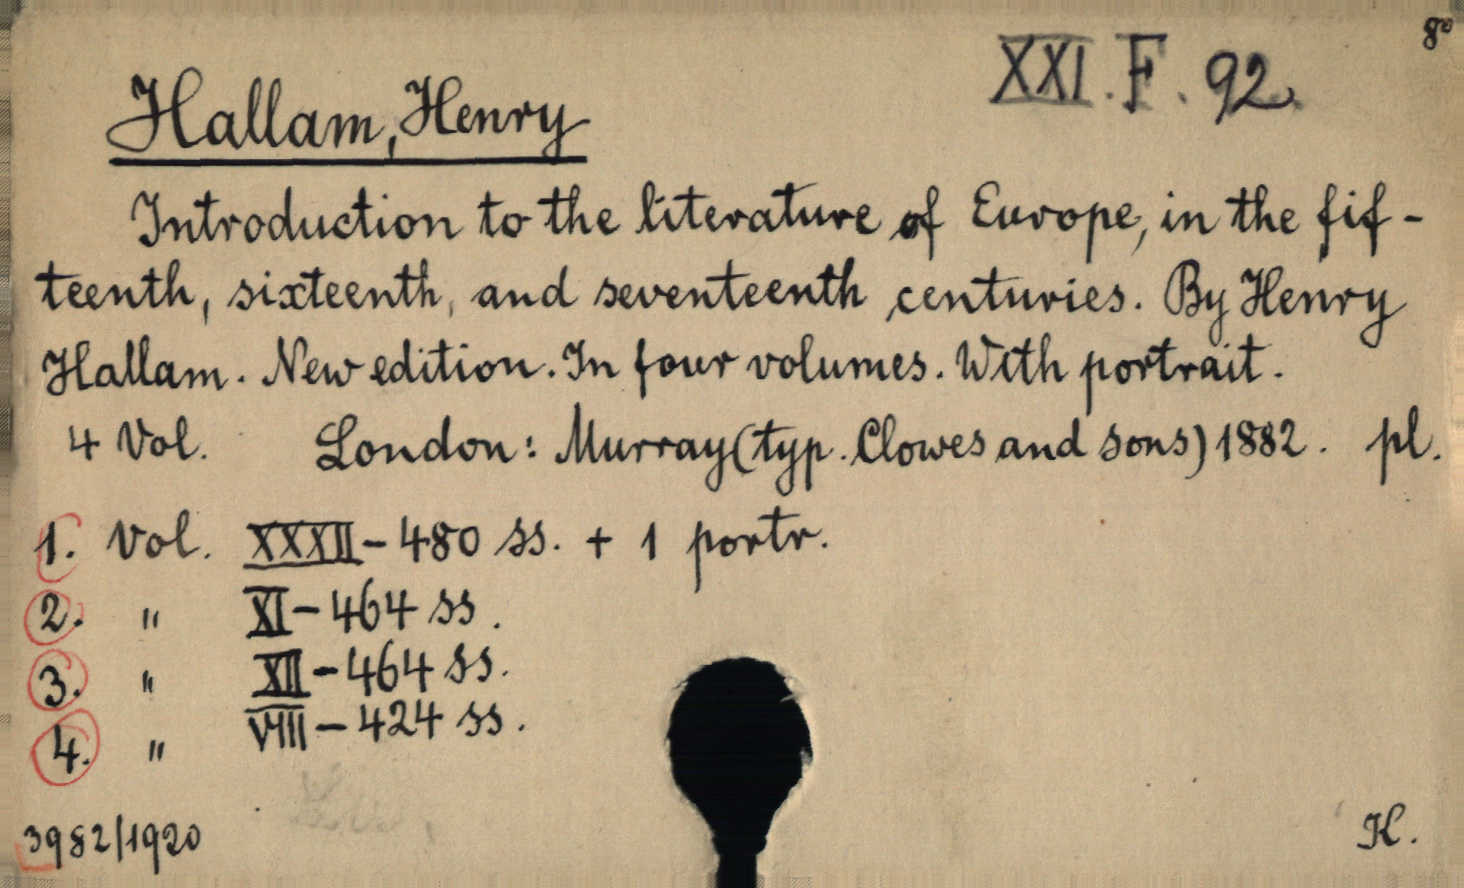 8°
XXI. F. 92.
Hallam, Henry
Introduction to the literature of Europe, in the fif-
teenth, sixteenth, and seventeenth centuries. By Henry
Hallam. New edition. In four volumes. With portrait.
4 Vol. London: Murray (typ. Clowes and sons) 1882. pl.
1. Vol. XXXII - 480 ss. + 1 portr.
2. " XI - 464 ss.
3. " XII - 464 ss.
4. " VIII - 424 ss.
3982/1920
K.